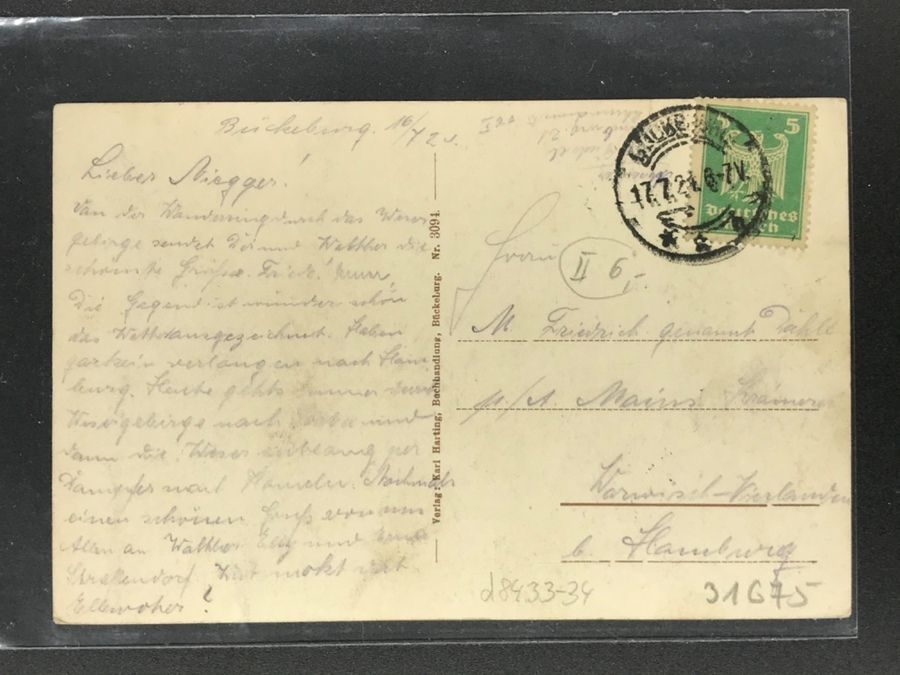 Bückeburg. 16/7 2
Lieber Niegger!
Von der Wanderung durch das Weser
gebirge sendet Dir und Walther die
schönste Grüße Friede!
Die Gegend ist wunder schön
das Wetter ausgezeichnet. Haben
gar kein verlangen nach Ham
burg. Heute gehts immer durch
Wesergebirge nach und
dann die Weser entlang per
Dampfer nach Hameln. Nochmals
einen schönen Gruß von uns
Allen an Walther Elly und
Strakendorf.
Verlag: Karl Harting, Buchhandlung, Bückeburg. Nr. 3094.
BÜCKEBURG
17.7.2 6-7V.
5
Deutsches
Reich
Herrn
II 6,-
M Friedrich genannt Dähll
p/A Mains Krämer
Warwisch-Vierlanden
b. Hamburg
d8433-34
31675